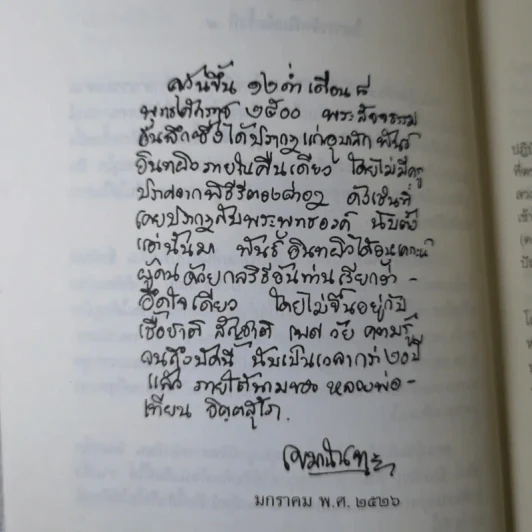 วันขึ้น ๑๒ ค่ำ เดือน ๘
พุทธศักราช ๒๕๐๐ พระสัจจธรรม
อันลึกซึ้งได้ปรากฏแก่อุบาสก พันธ์
อินทผิว ภายในคืนเดียว โดยไม่มีครู
ปราศจากพิธีรีตองต่างๆ ดังเช่นที่
เคยปรากฏกับพระพุทธองค์ นับตั้ง
แต่นั้นมา พันธ์ อินทผิวได้อนุเคราะห์
ผู้คนด้วยกลวิธีอันท่านเรียกว่า -
อึดใจเดียว โดยไม่ขึ้นอยู่กับ
เชื้อชาติ สัญชาติ เพศ วัย ความรู้
จนถึงบัดนี้ นับเป็นเวลากว่า ๒๐ ปี
แล้ว ภายใต้นามของ หลวงพ่อ -
เทียน จิตฺตสุโภ.
เขมานันทะ
มกราคม พ.ศ. ๒๕๒๖